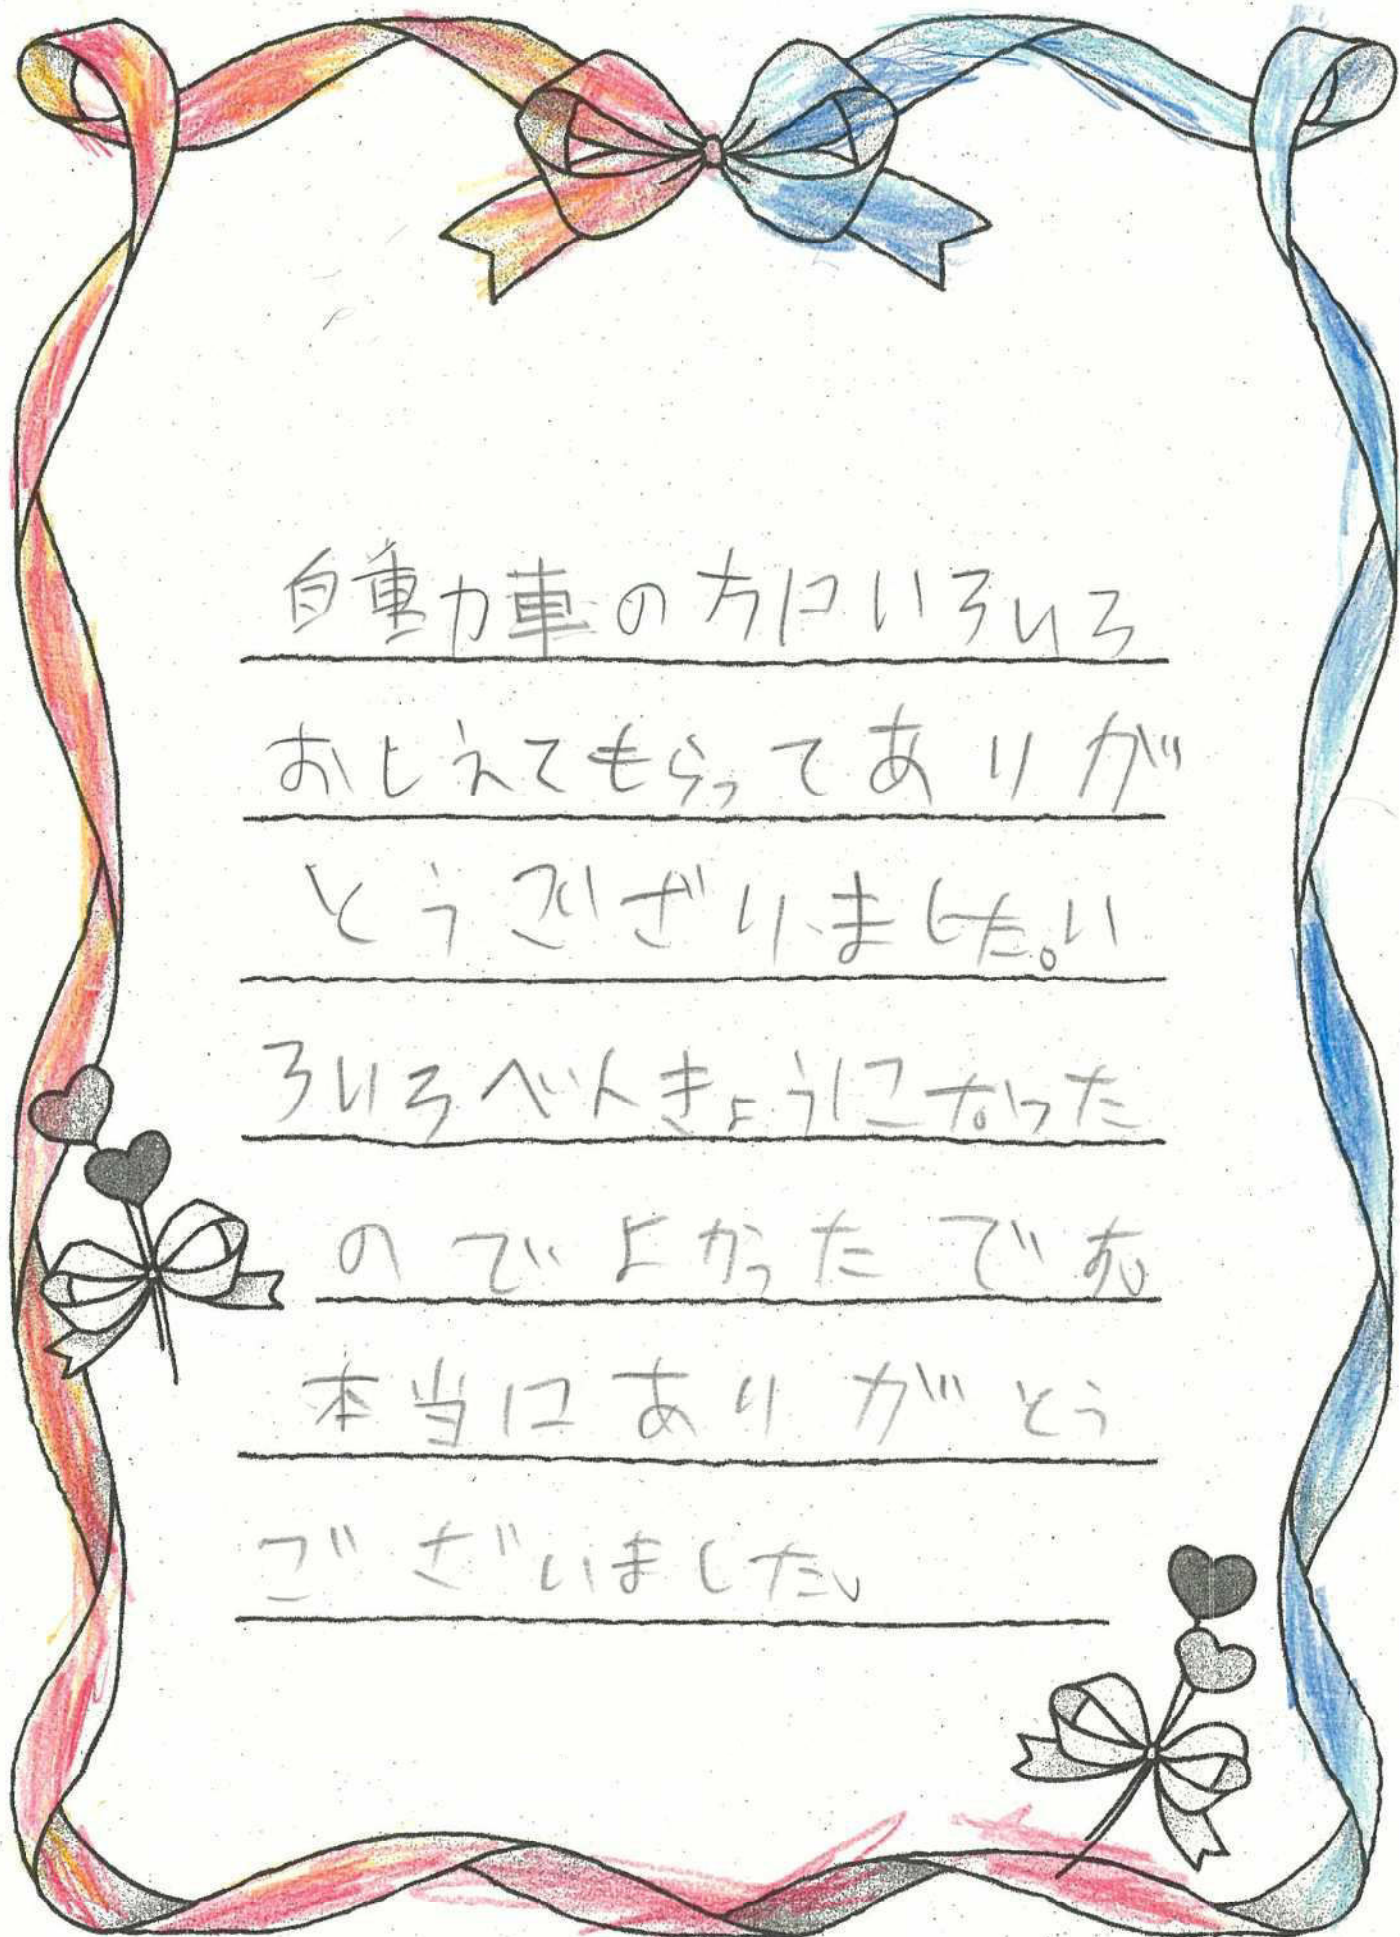 自動車の方にいろいろ
おしえてもらってありが
とうございました。い
ろいろべんきょうになった
のでよかったです。
本当にありがとう
ございました。